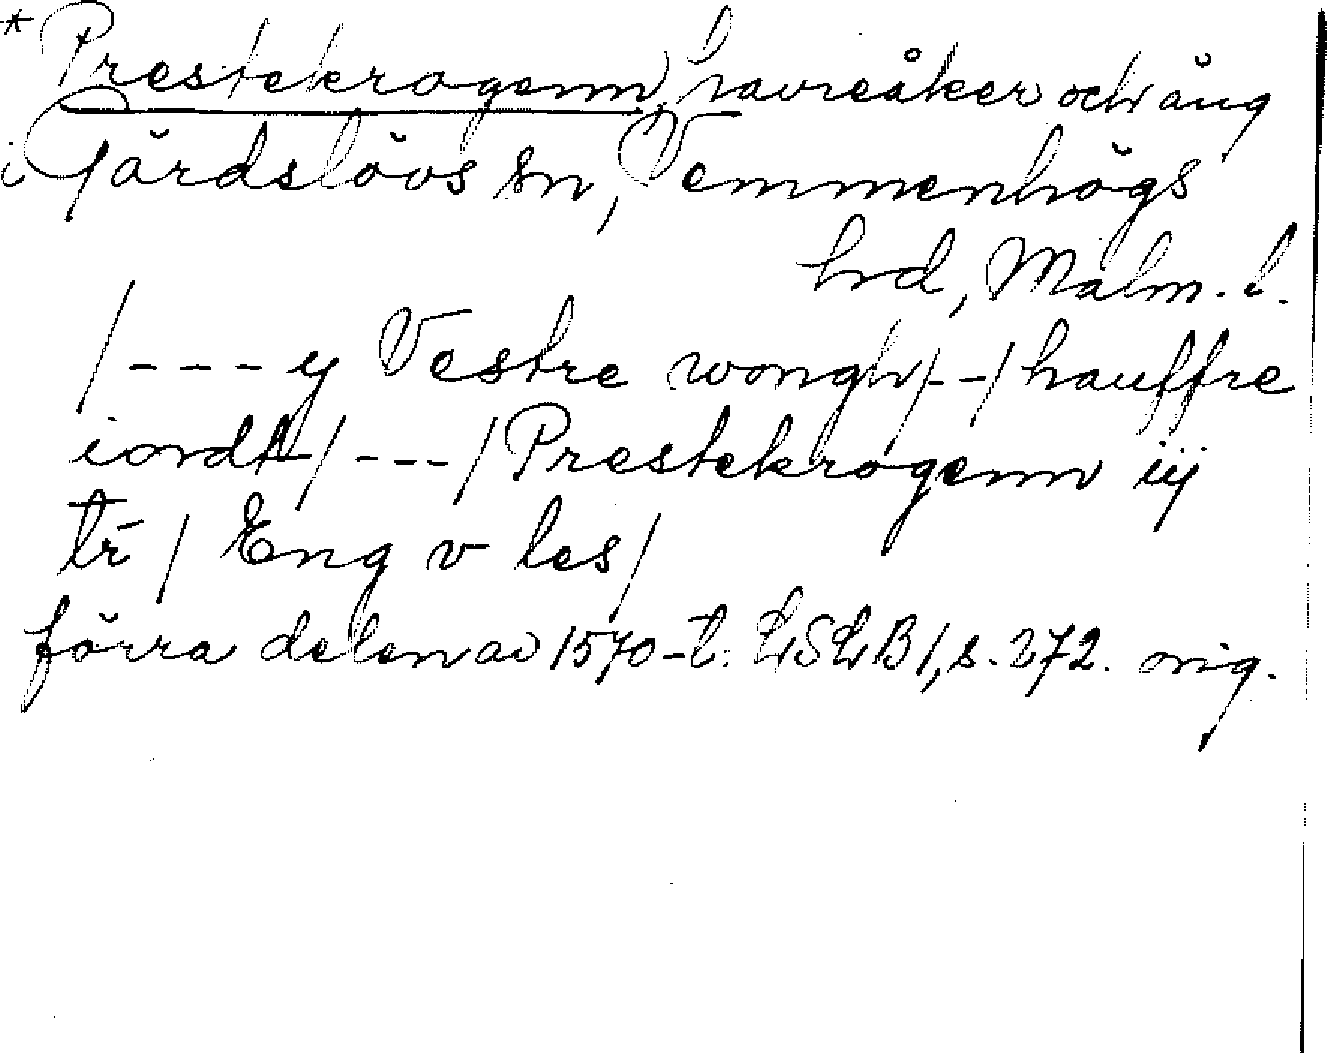 * Prestekrogenn, havreåker och äng
i Gärdslövs sn, Vemmenhögs
hrd, Malm. l.
/ - - - y Vestre wongh / - - / hauffre
iordt / - - - / Prestekrogenn iij
tr̄ / Eng v les /
förra delen av 1570-t. LSLB 1, s. 272. orig.